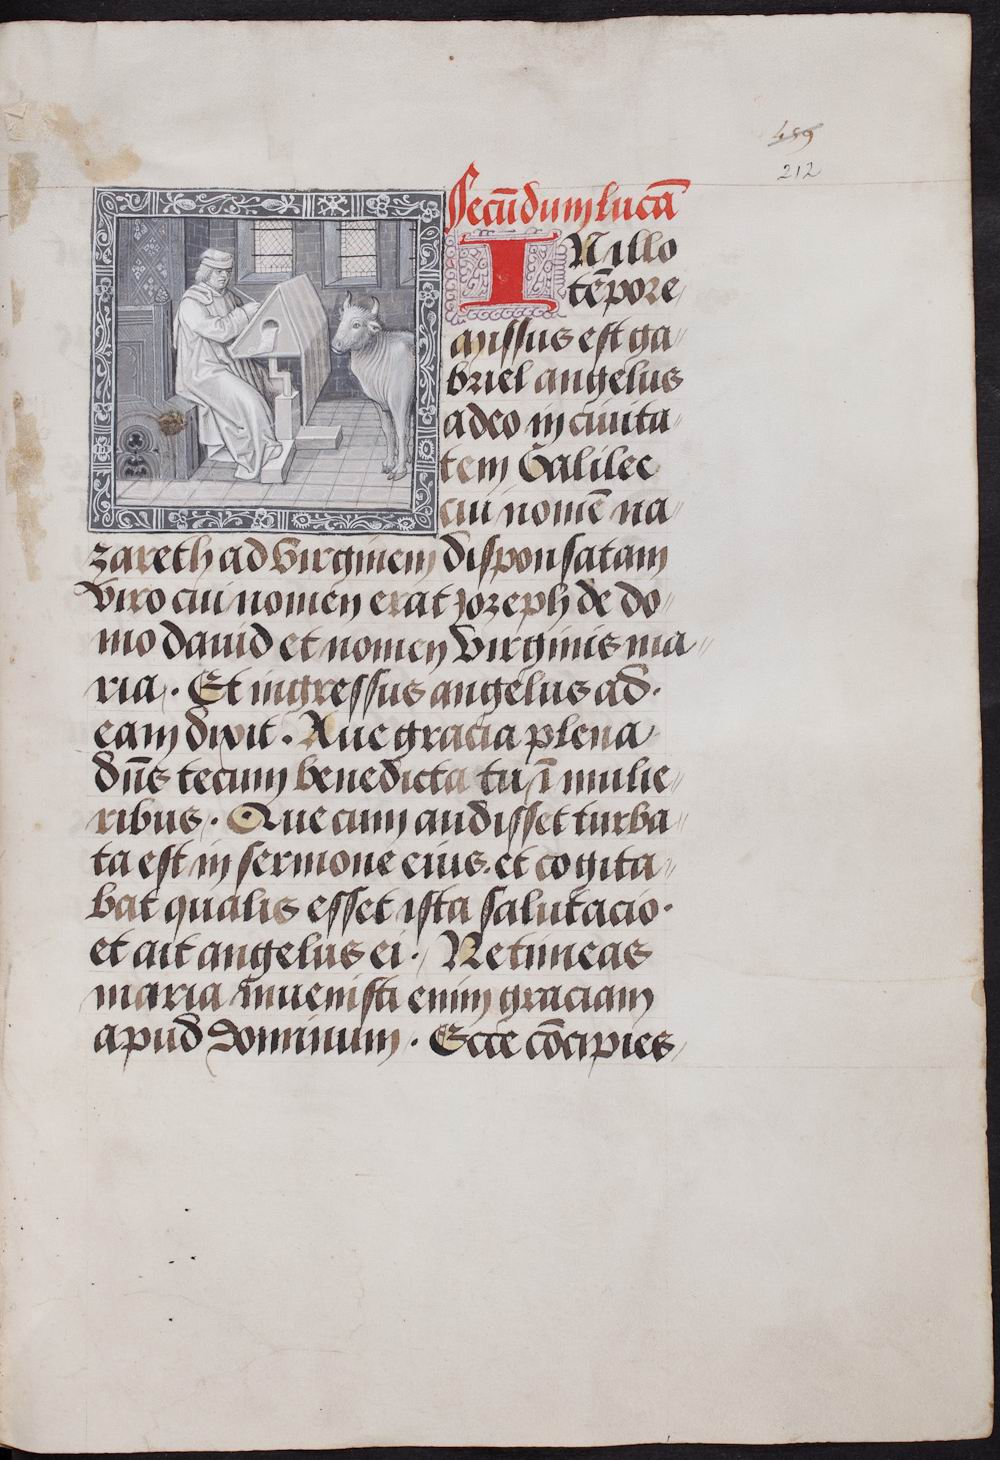 459
212
Secūdum lucā
INillo
tēpore
missus est ga〃
briel angelus
adeo in ciuita〃
tem Galilee
cui nomē na〃
zareth ad virginem disponsatam
viro cui nomen erat jozeph de do〃
mo dauid et nomen virginis ma〃
ria. Et ingressus angelus ad.
eam dixit. Aue gracia plena
dn̄s tecum benedicta tu ī mulie〃
ribus. Que cum audisset turba〃
ta est in sermone eius. et cogita〃
bat qualis esset ista salutacio.
et ait angelus ei. Ne timeas
maria inuenisti enim graciam
apud dominum. Ecce cōcipies